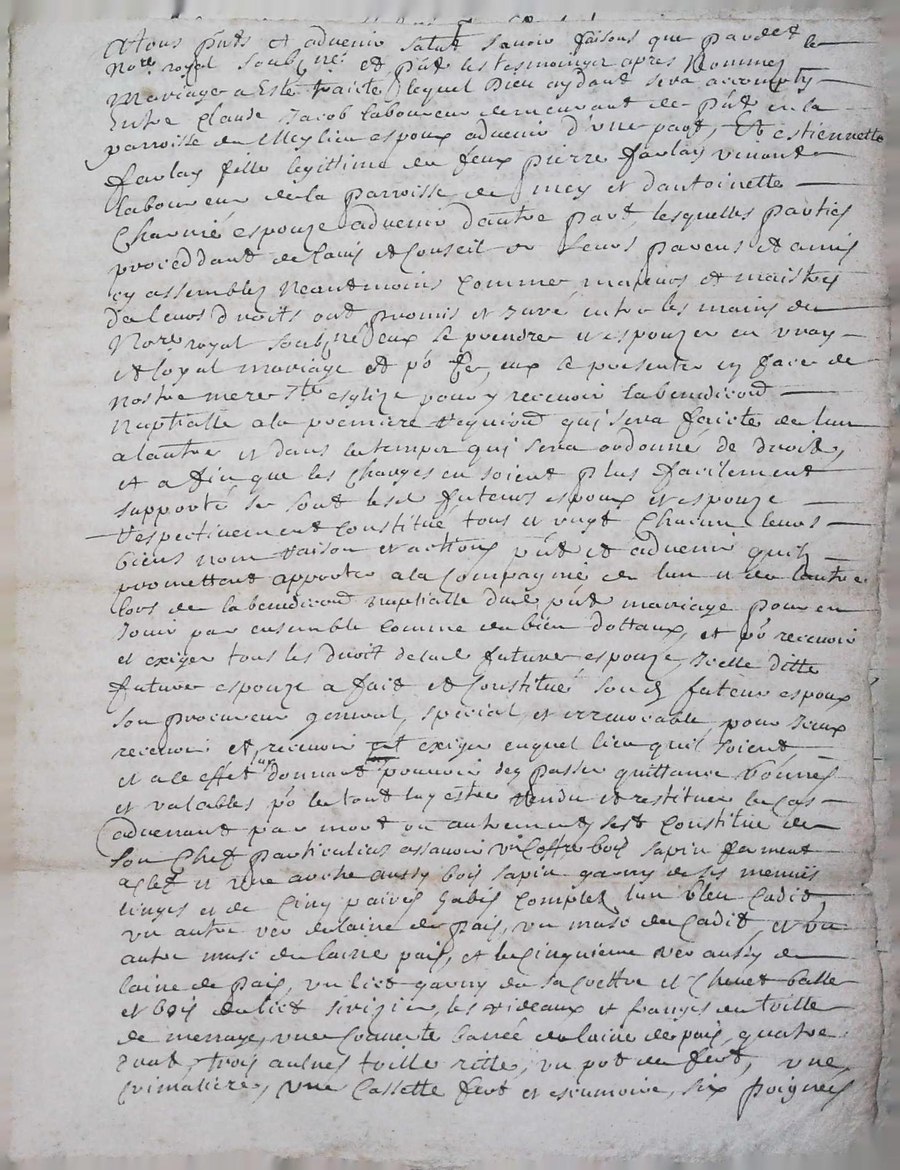 A tous p'nts et advenir salut scavoir faisons que pardevt le
No.re royal soubz.né et p'nt les tesmoings apres nommez
Mariage a este traicté lequel Dieu aydant sera accomply
Entre claude Jacob laboureur demeurant de p'nt en la
parroisse de Meylieu espoux advenir d'une part, Et estiennette
faulay fille legittime de feux pierre faulay vivant
laboureur de la parroisse de et dantoinette
Charvié espouze advenir dautre part, lesquelles parties
proceddant de lauis et Conseil de leurs parens et amis
cy assemblez Neantmoins comme majeurs et maistres
de leurs Droits ont promis et Juré entre les mains du
No.re royal soubz.né deux se prendre et espouzer en vray
et loyal mariage et p'r eux se presenter en face de
nostre mere S.te esglize pour y recevoir la benediction
Nuptialle a la premiere requion qui sera faicte de lun
a lautre et dans le temps qui sera ordonné de droit,
et afin que les charges en soient plus facilement
supporté se sont lesd futeurs espoux et espouze
respectivement constitué tous et vngt chacun leurs
biens nom raison et actions p'nt et advenir quilz
promettent apporter a la compagnie de lun et de lautre
lors de la benediction nuptialle du p'nt mariage pour en
Jouir par ensemble comme de bien dottaux, et p'r recevoir
et exiger tous les droit de lad future espouze, Icelle ditte
future espouze a fait et constitué son d futeur espoux
son procureur general, special, et irrevocable pour Iceux
recevoir et recevoir et exiger enquel lieu quil soient
et a le effet donnant pouvoir den passer quittance bonnes
et valables p'r le tout luy estre rendu et restituer le cas
advenant par mort ou autrement, sest constitue de
son Chef particulier assavoir un coffre bois sapin fermant
a clef et une arche aussy bois sapin garny de ses menus
linges et de cinq paires habis complet lun bleu cadit,
un autre ver de laine de pais, un musc de cadit, et un
autre musc de laine pais, et le cinquieme ver aussy de
laine de pais, un lict garny de sa coettre et chevet balle
et bois de lict sirizier, les rideaux et franges de toille
de menage, une couverte barrée de laine de pais, quatre
trois aulnes toille ritte, un pot de fert, une
crimaliere, une cassette fert et escumoire, six poignes